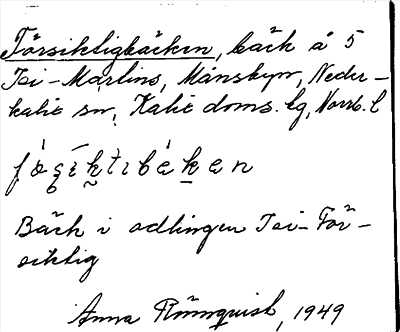 Försiktigbäcken, bäck å 5
Isi-Mårtins, Månsbyn, Neder-
kalix sn, Kalix doms. lg, Norrb. l
Bäck i odlingen Isi-För-
siktig
Anna Rönnquist, 1949